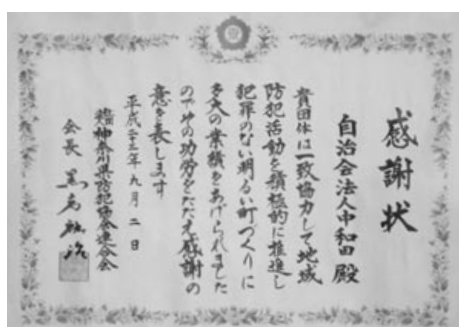 感謝状
自治会法人中和田殿
貴団体は一致協力して地域
防犯活動を積極的に推進し
犯罪のない明るい町づくりに
多大の業績をあげられました
のでその功労をたたえ感謝の
意を表します
平成二十三年九月二日
神奈川県防犯協会連合会
会長